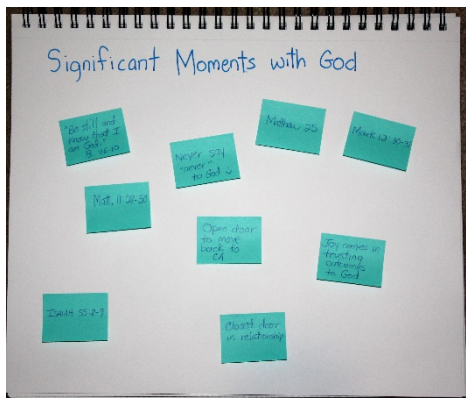 Significant Moments with God
"Be still and
know that I
am God."
Ps. 46:10
Never say
"never"
to God
Matthew 25
Mark 12:30-31
Matt. 11:28-30
Open door
to move
back to
CA
Joy comes in
trusting
outcomes
to God
ISAIAH 55:8-9
Closed door
in relationship